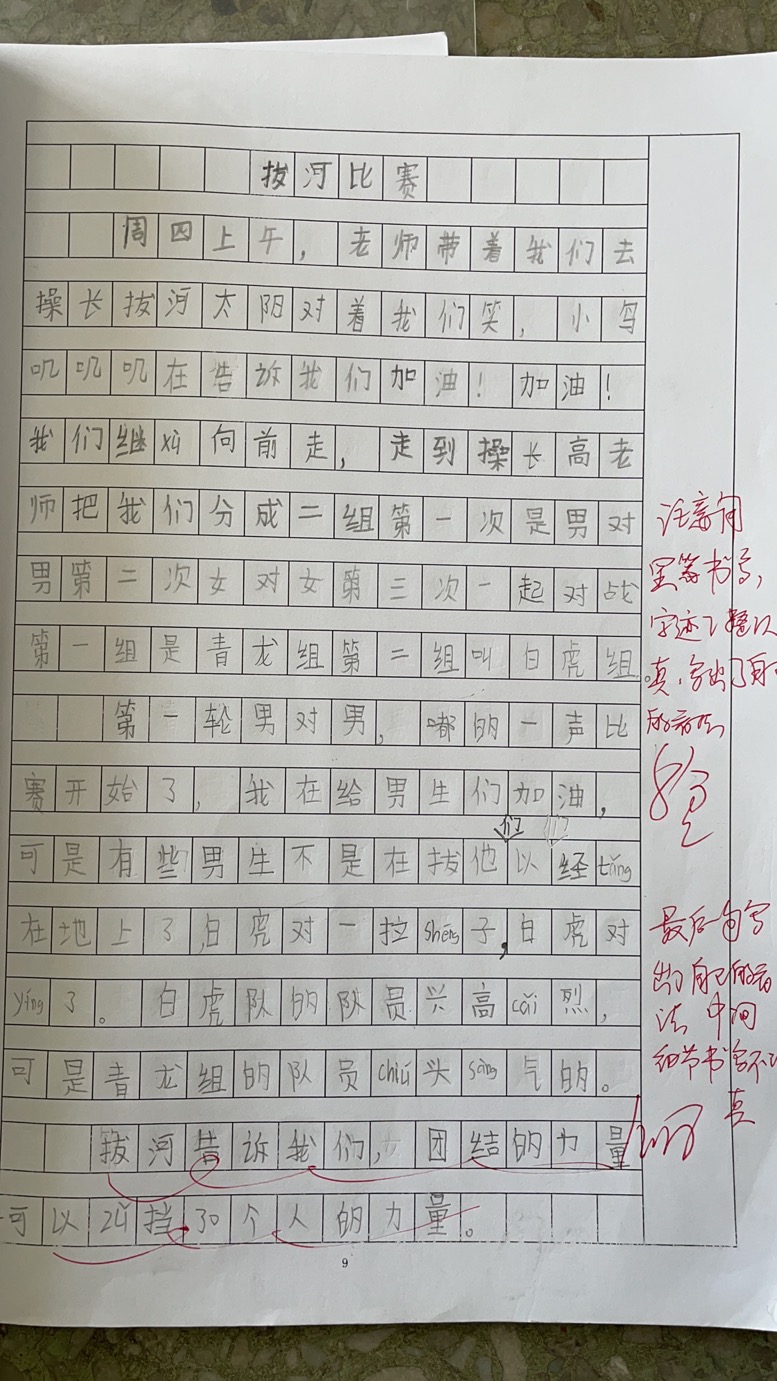 拔河比赛
周四上午，老师带着我们去
操长拔河太阳对着我们笑，小鸟
叽叽叽在告诉我们加油！加油！
我们继xù向前走，走到操长高老
师把我们分成二组第一次是男对
男第二次女对女第三次一起对战
第一组是青龙组第二组叫白虎组。
第一轮男对男，嘟的一声比
赛开始了，我在给男生们加油，
可是有些男生不是在拔他们以经tǎng
在地上了，白虎对一拉shéng子，白虎对
yíng了。白虎队的队员兴高cǎi烈，
可是青龙组的队员chuí头sàng气的。
拔河告诉我们，团结的力量
可以zǔ挡30个人的力量。
注意问
字迹
真，写出了自
最后一句写
出了自己的
法 中间
细节书写不
真
9